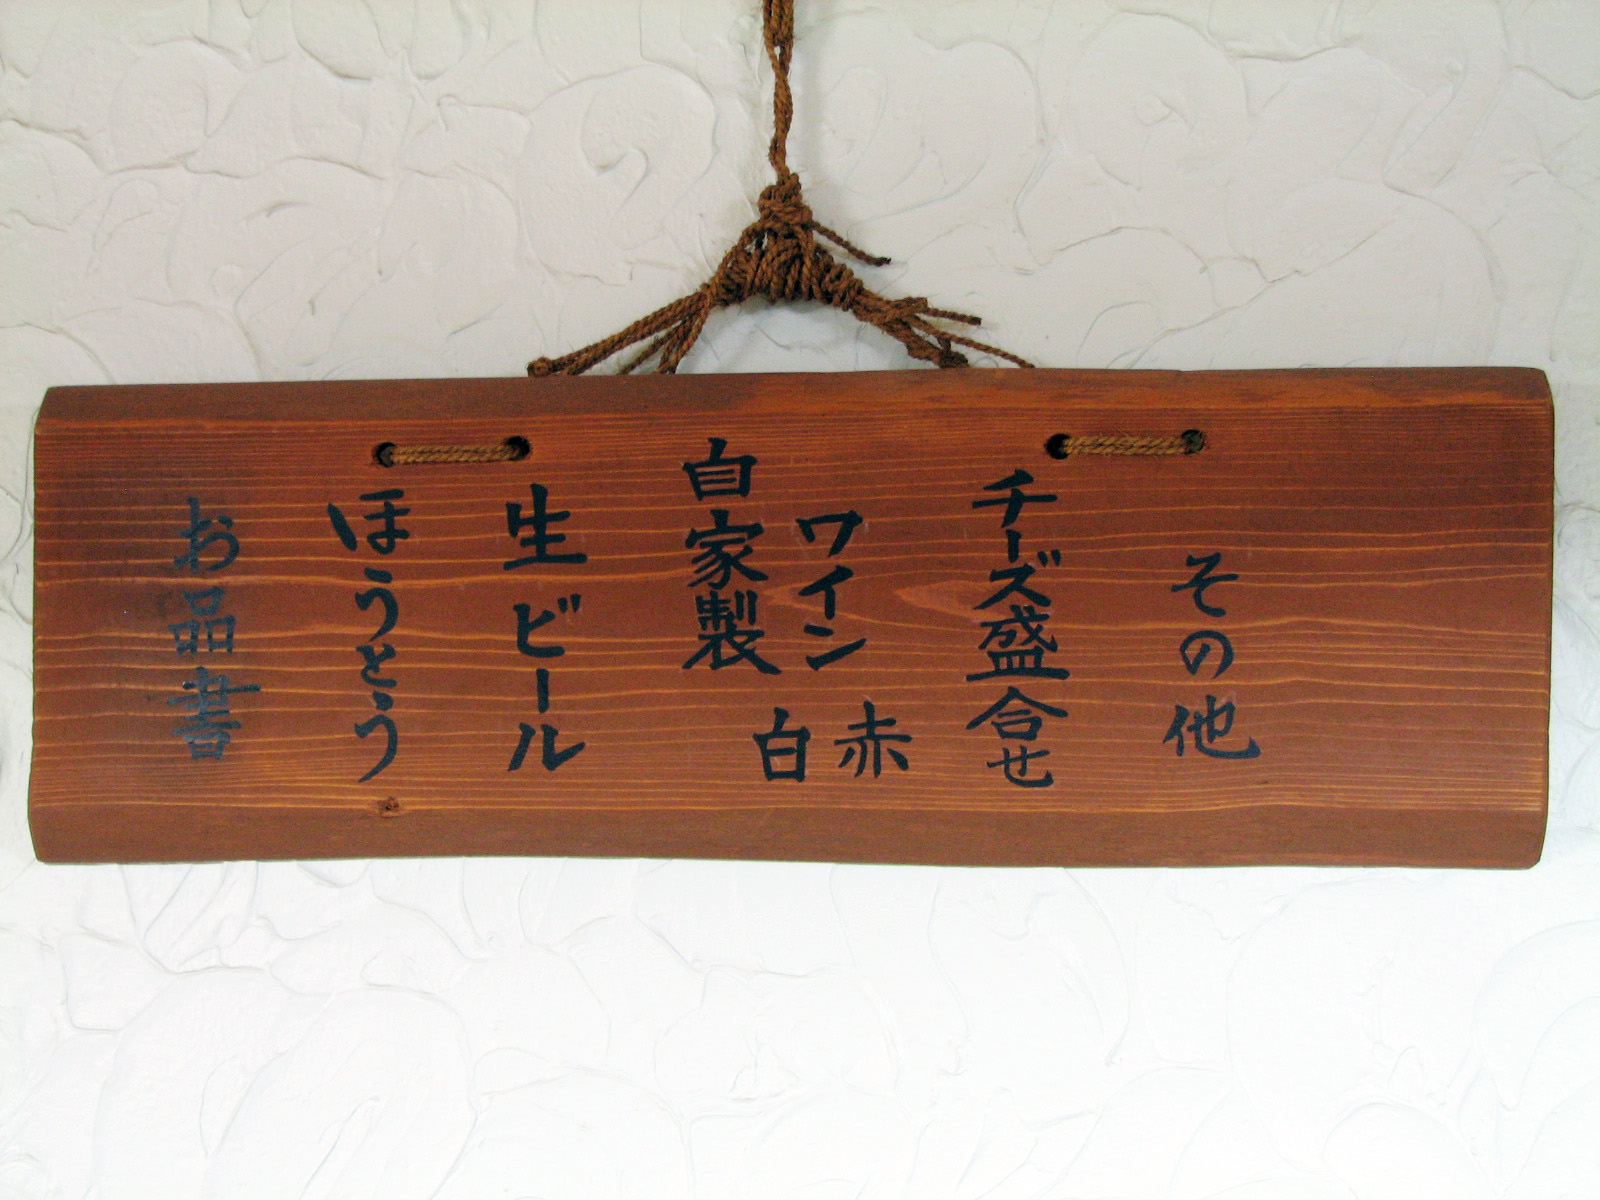 お品書
ほうとう
生ビール
自家製
ワイン
白
赤
チーズ盛合せ
その他